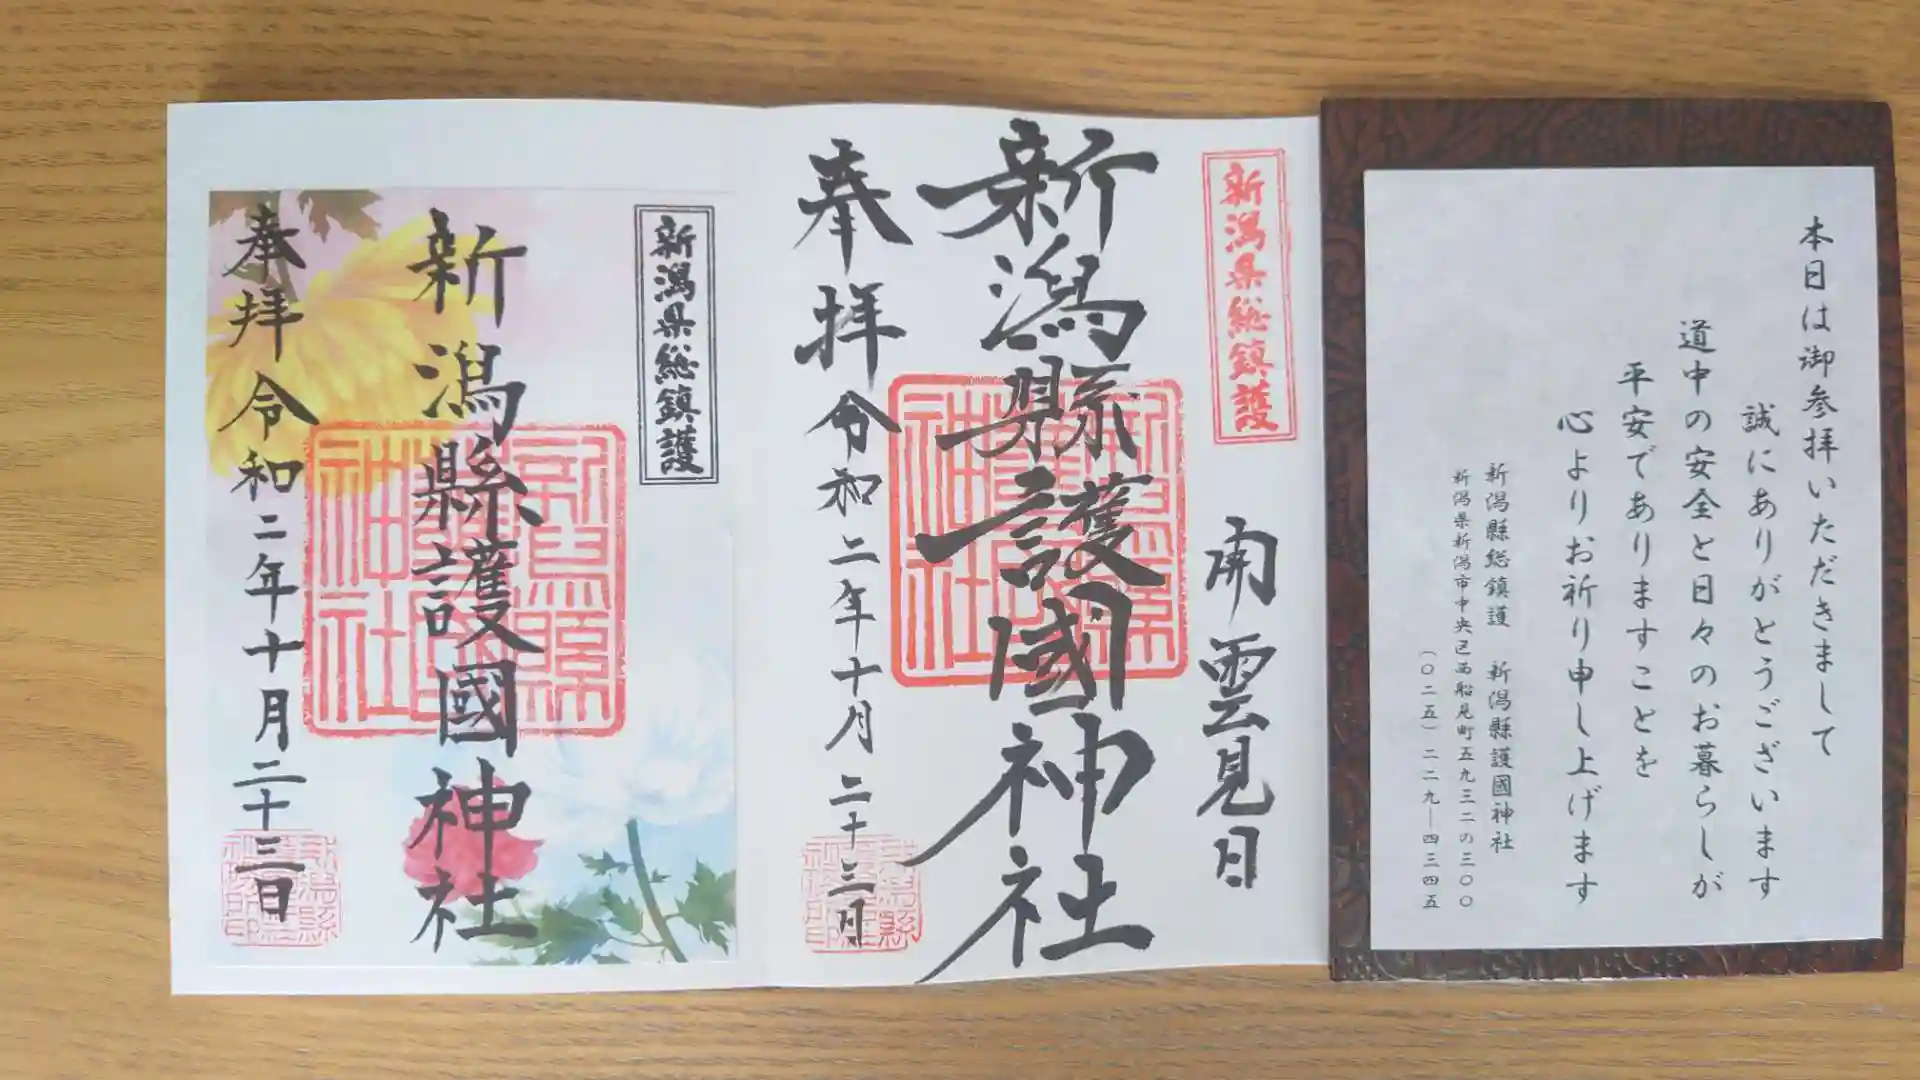 本日は御参拝いただきまして
誠にありがとうございます
道中の安全と日々のお暮らしが
平安でありますことを
心よりお祈り申し上げます
新潟縣総鎮護 新潟縣護國神社
新潟県新潟市中央区西船見町五九三二の三〇〇
(〇二五)二二九―四三四五
新潟県総鎮護
雲見日
新潟縣護國神社
奉拝 令和二年十月二十三日
新潟県総鎮護
新潟縣護國神社
奉拝 令和二年十月二十三日